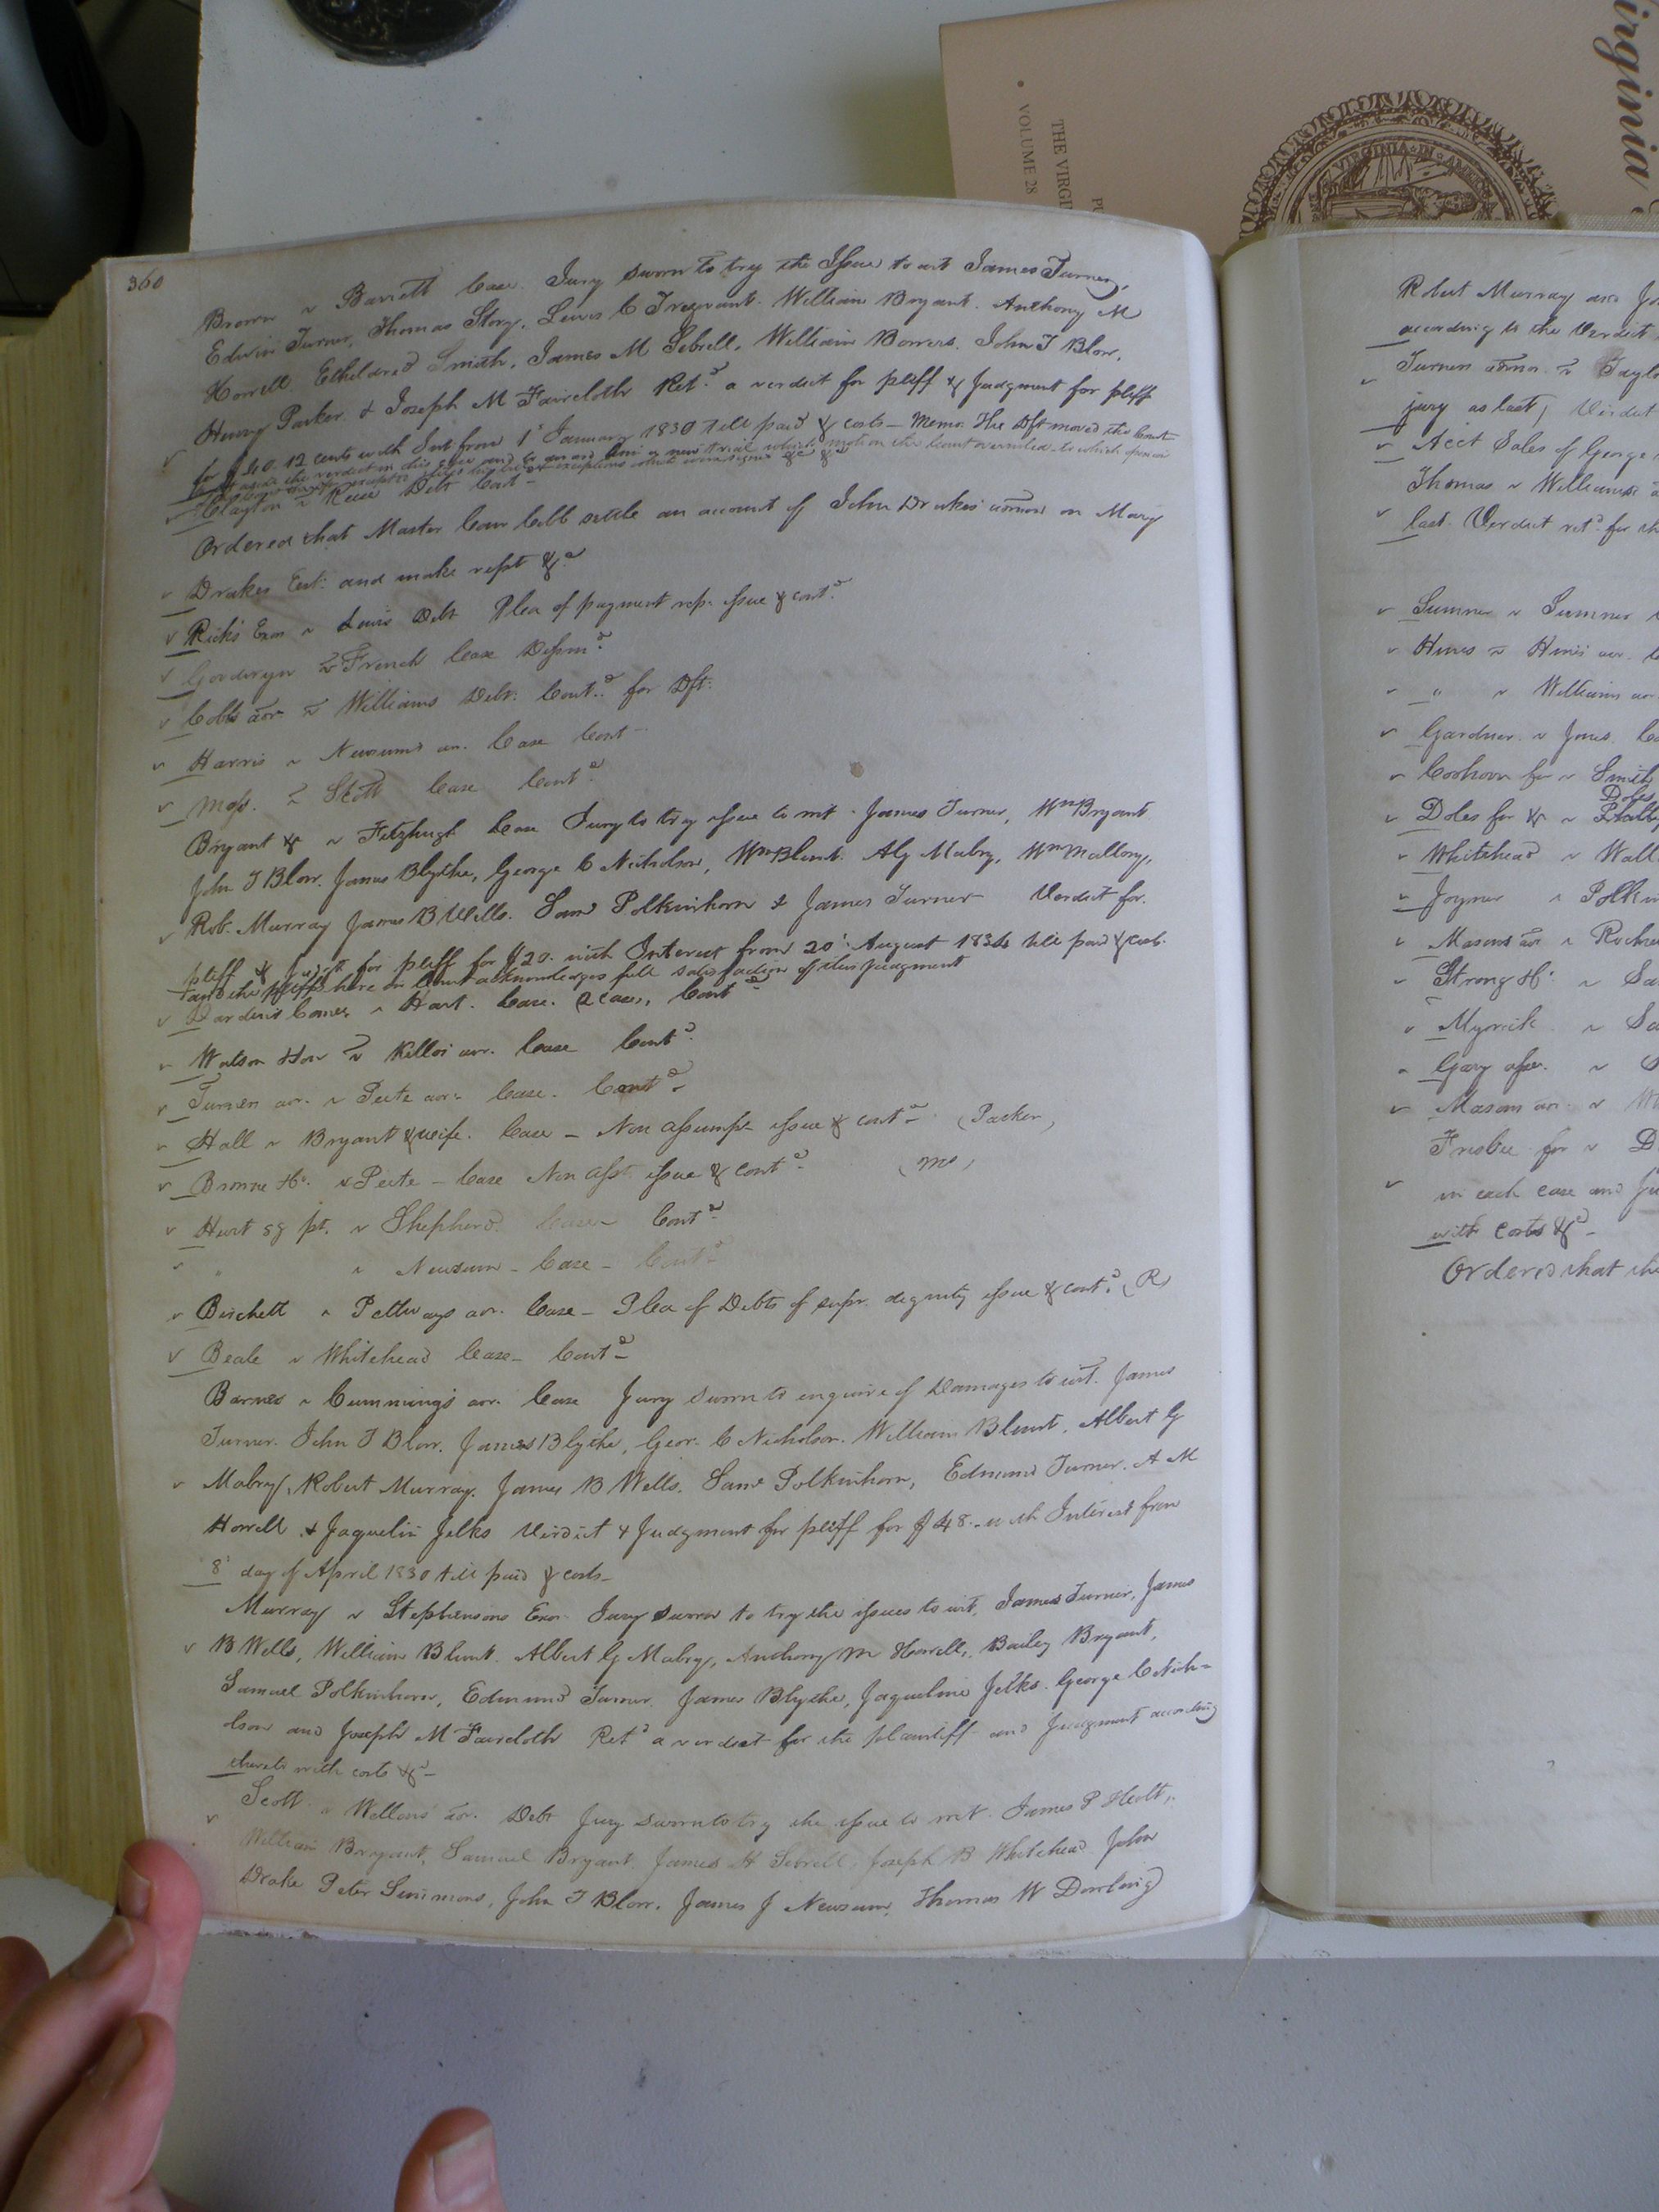 360
Brown v Barrett Case. Jury sworn to try the Issue to wit James Turner,
Edwin Turner, Thomas Story, Lewis C Trezvant. William Bryant. Anthony M
Howell Etheldred Smith, James M Sebrell, William Bowers. John T Blow,
Henry Parker. & Joseph M Faircloth Retd. a verdict for pltff & Judgment for pltff
for $40.12 cents with Int from 1st January 1830 till paid & costs — Memo. The Dft moved the Court
to set aside the verdict in this case and to award him a new trial which motion the Court overruled to which opinion
Clayton v Reese Debt Cont –
Ordered that Master Com Cobb settle an account of John Drakes admon on Mary
Drakes Est: and make rept &c
Rick's Exor v Lewis Debt Plea of payment rep. issue & contd.
Goodwyn v French Case Dismd.
Cobbs aor v Williams Debt. Contd. for Dft.
Harris v Newsums ar. Case Cont –
Moss. v Scott Case Contd.
Bryant & v Fitzhugh Case Jury to try issue to wit. James Turner, Wm Bryant
John T Blow. James Blythe, George C Nicholson, Wm Blunt. Al G Mabry, Wm Mallory,
Rob. Murray James B Wells. Saml Polkinhorn & James Turner – Verdict for
pltff & Judgt for pltff for $20. with Interest from 20th August 1834 till paid & costs.
and the pltff here in Court acknowledges full satisfaction of this judgment
Dardens Comee v Hart. Case. (2 cases, Contd.
Watson How v Killos aor. Case Contd.
Turner aor. v Peete aor. Case. Contd –
Hall v Bryant & wife. Case – Non assumpt issue & contd – (Parker)
Browne &c. v Peete – Case Non asst. issue & contd. (mo)
Hurt sg pt. v Shepherd. Case – Contd –
" v Newsum – Case – Contd –
Birchett v Pettways aor. Case – Plea of Debts of supr. dignity issue & contd. (R)
Beale v Whitehead Case – Contd –
Barnes v Cumming's aor. Case Jury sworn to enquire of Damages to wit. James
Turner. John T Blow. James Blythe, Geor. C Nicholson. William Blunt, Albert G
Mabry, Robert Murray. James B Wells. Saml Polkinhorn, Edmund Turner. A M
Howell & Jaquelin Jelks Verdict & Judgment for pltff for $48. – with Interest from
8th day of April 1830 till paid & costs –
Murray v Stephensons Exor Jury sworn to try the issues to wit, James Turner, James
B Wells, William Blunt. Albert G Mabry, Anthony M Howell, Bailey Bryant,
Samuel Polkinhorn, Edmund Turner. James Blythe, Jaqueline Jelks. George C Nich=
olson and Joseph M Faircloth Retd a verdict for the plaintiff and Judgment according
thereto with costs &c –
Scott v Wellons aor. Debt Jury sworn to try the issue to wit. James P Holt,
William Bryant, Samuel Bryant. James H Sebrell, Joseph B Whitehead John
Drake Peter Simmons, John T Blow. James J Newsum, Thomas W Dowling
Robert Murray and Jo
according to the Verdict
Turners admor. v Tayl
jury as last, Verdict
Acct Sales of George
Thomas v Williams
last. Verdict retd. for th
Sumner v Sumner
Hines v Hines aor.
" v Williams ao
Gardner v Jones. Ca
for v Smith
Doles
Doles for & v
Whitehead v Wall
Joyner v Polkin
Masons aor v Roch
Strong &c. v Sa
Myrick v Sa
Gary assee. v
Masons aor. v
Frisbie for v D
in each case and Ju
with costs &c –
Ordered that the
irginia
THE VIRGI
VOLUME 28
VIRGINIA IN